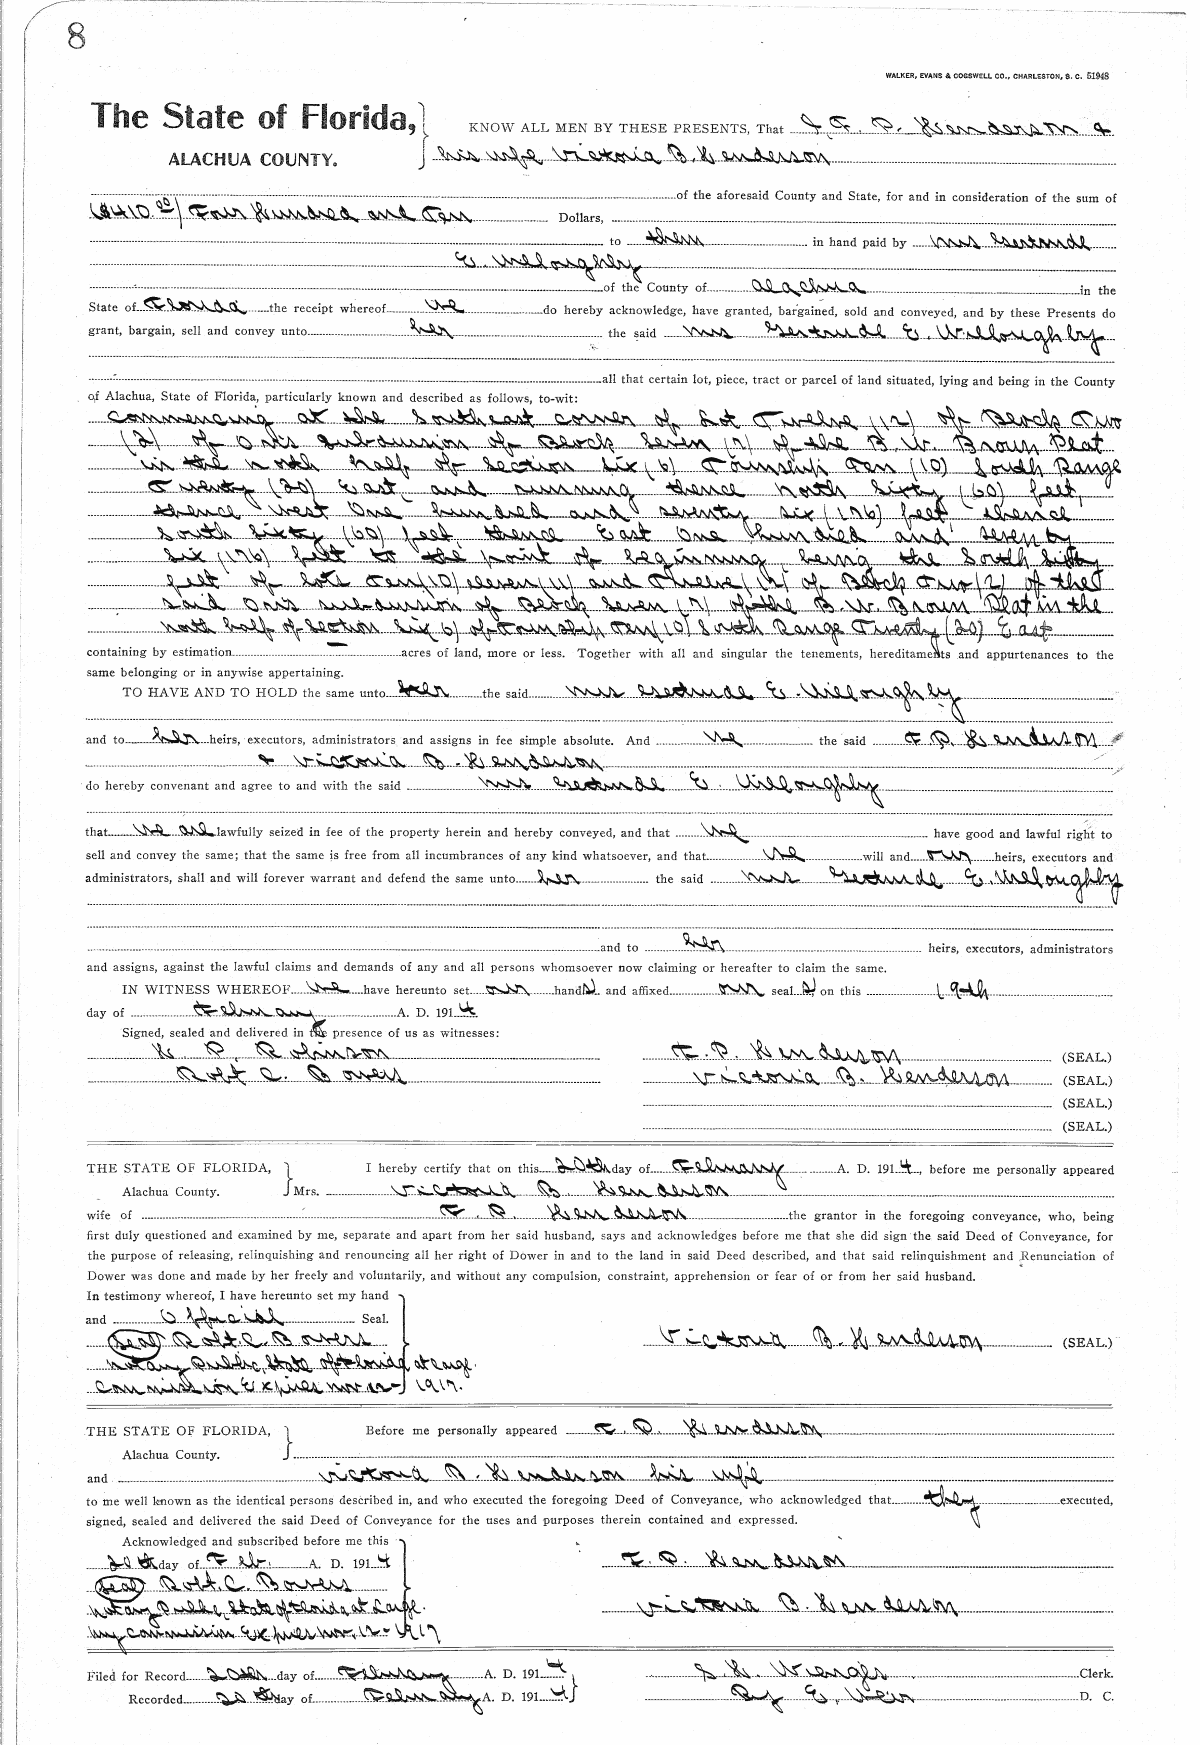 8
WALKER, EVANS & COGSWELL CO., CHARLESTON, S. C. 51948
The State of Florida,
ALACHUA COUNTY.
KNOW ALL MEN BY THESE PRESENTS, That I, F. P. Henderson &
his wife Victoria B. Henderson
of the aforesaid County and State, for and in consideration of the sum of
($410.00) Four Hundred and Ten Dollars,
to them in hand paid by Mrs Gertrude
E. Willoughby
of the County of Alachua in the
State of Florida the receipt whereof we do hereby acknowledge, have granted, bargained, sold and conveyed, and by these Presents do
grant, bargain, sell and convey unto her the said Mrs Gertrude E. Willoughby
all that certain lot, piece, tract or parcel of land situated, lying and being in the County
of Alachua, State of Florida, particularly known and described as follows, to-wit:
Commencing at the Southeast corner of Lot Twelve (12) of Block Two
(2) of Orr's Subdivision of Block Seven (7) of the B. W. Brown Plat
in the north half of Section Six (6) Township Ten (10) South Range
Twenty (20) East, and running thence north Sixty (60) feet,
thence West One hundred and seventy six (176) feet, thence
South Sixty (60) feet, thence East One hundred and seventy
six (176) feet to the point of beginning, being the South Sixty
feet of lots Ten (10) eleven (11) and Twelve (12) of Block Two (2) of the
said Orr's subdivision of Block Seven (7) of the B. W. Brown Plat in the
north half of Section Six (6) of Township Ten (10) South Range Twenty (20) East
containing by estimation acres of land, more or less. Together with all and singular the tenements, hereditaments and appurtenances to the
same belonging or in anywise appertaining.
TO HAVE AND TO HOLD the same unto her the said Mrs Gertrude E. Willoughby
and to her heirs, executors, administrators and assigns in fee simple absolute. And we the said F. P. Henderson
& Victoria B. Henderson
do hereby convenant and agree to and with the said Mrs Gertrude E. Willoughby
that we are lawfully seized in fee of the property herein and hereby conveyed, and that we have good and lawful right to
sell and convey the same; that the same is free from all incumbrances of any kind whatsoever, and that we will and our heirs, executors and
administrators, shall and will forever warrant and defend the same unto her the said Mrs Gertrude E. Willoughby
and to her heirs, executors, administrators
and assigns, against the lawful claims and demands of any and all persons whomsoever now claiming or hereafter to claim the same.
IN WITNESS WHEREOF we have hereunto set our hands and affixed our seals on this 19th
day of February A. D. 1914
Signed, sealed and delivered in the presence of us as witnesses:
K. P. Robinson F. P. Henderson (SEAL.)
Robt C. Bowers Victoria B. Henderson (SEAL.)
(SEAL.)
(SEAL.)
THE STATE OF FLORIDA, I hereby certify that on this 20th day of February A. D. 1914, before me personally appeared
Alachua County. Mrs. Victoria B. Henderson
wife of F. P. Henderson the grantor in the foregoing conveyance, who, being
first duly questioned and examined by me, separate and apart from her said husband, says and acknowledges before me that she did sign the said Deed of Conveyance, for
the purpose of releasing, relinquishing and renouncing all her right of Dower in and to the land in said Deed described, and that said relinquishment and Renunciation of
Dower was done and made by her freely and voluntarily, and without any compulsion, constraint, apprehension or fear of or from her said husband.
In testimony whereof, I have hereunto set my hand
and Official Seal.
Seal Robt. C. Bowers Victoria B. Henderson (SEAL.)
Notary Public, State of Florida at Large.
Commission Expires Nov 12- 1917.
THE STATE OF FLORIDA, Before me personally appeared F. P. Henderson
Alachua County.
and Victoria B. Henderson his wife
to me well known as the identical persons described in, and who executed the foregoing Deed of Conveyance, who acknowledged that they executed,
signed, sealed and delivered the said Deed of Conveyance for the uses and purposes therein contained and expressed.
Acknowledged and subscribed before me this
20th day of Feb. A. D. 1914 F. P. Henderson
Seal Robt. C. Bowers
Notary Public, State of Florida at Large. Victoria B. Henderson
My commission Expires Nov. 12- 1917
Filed for Record 20th day of February A. D. 1914 S. H. Wienges Clerk.
Recorded 20th day of February A. D. 1914 By E. Weir D. C.